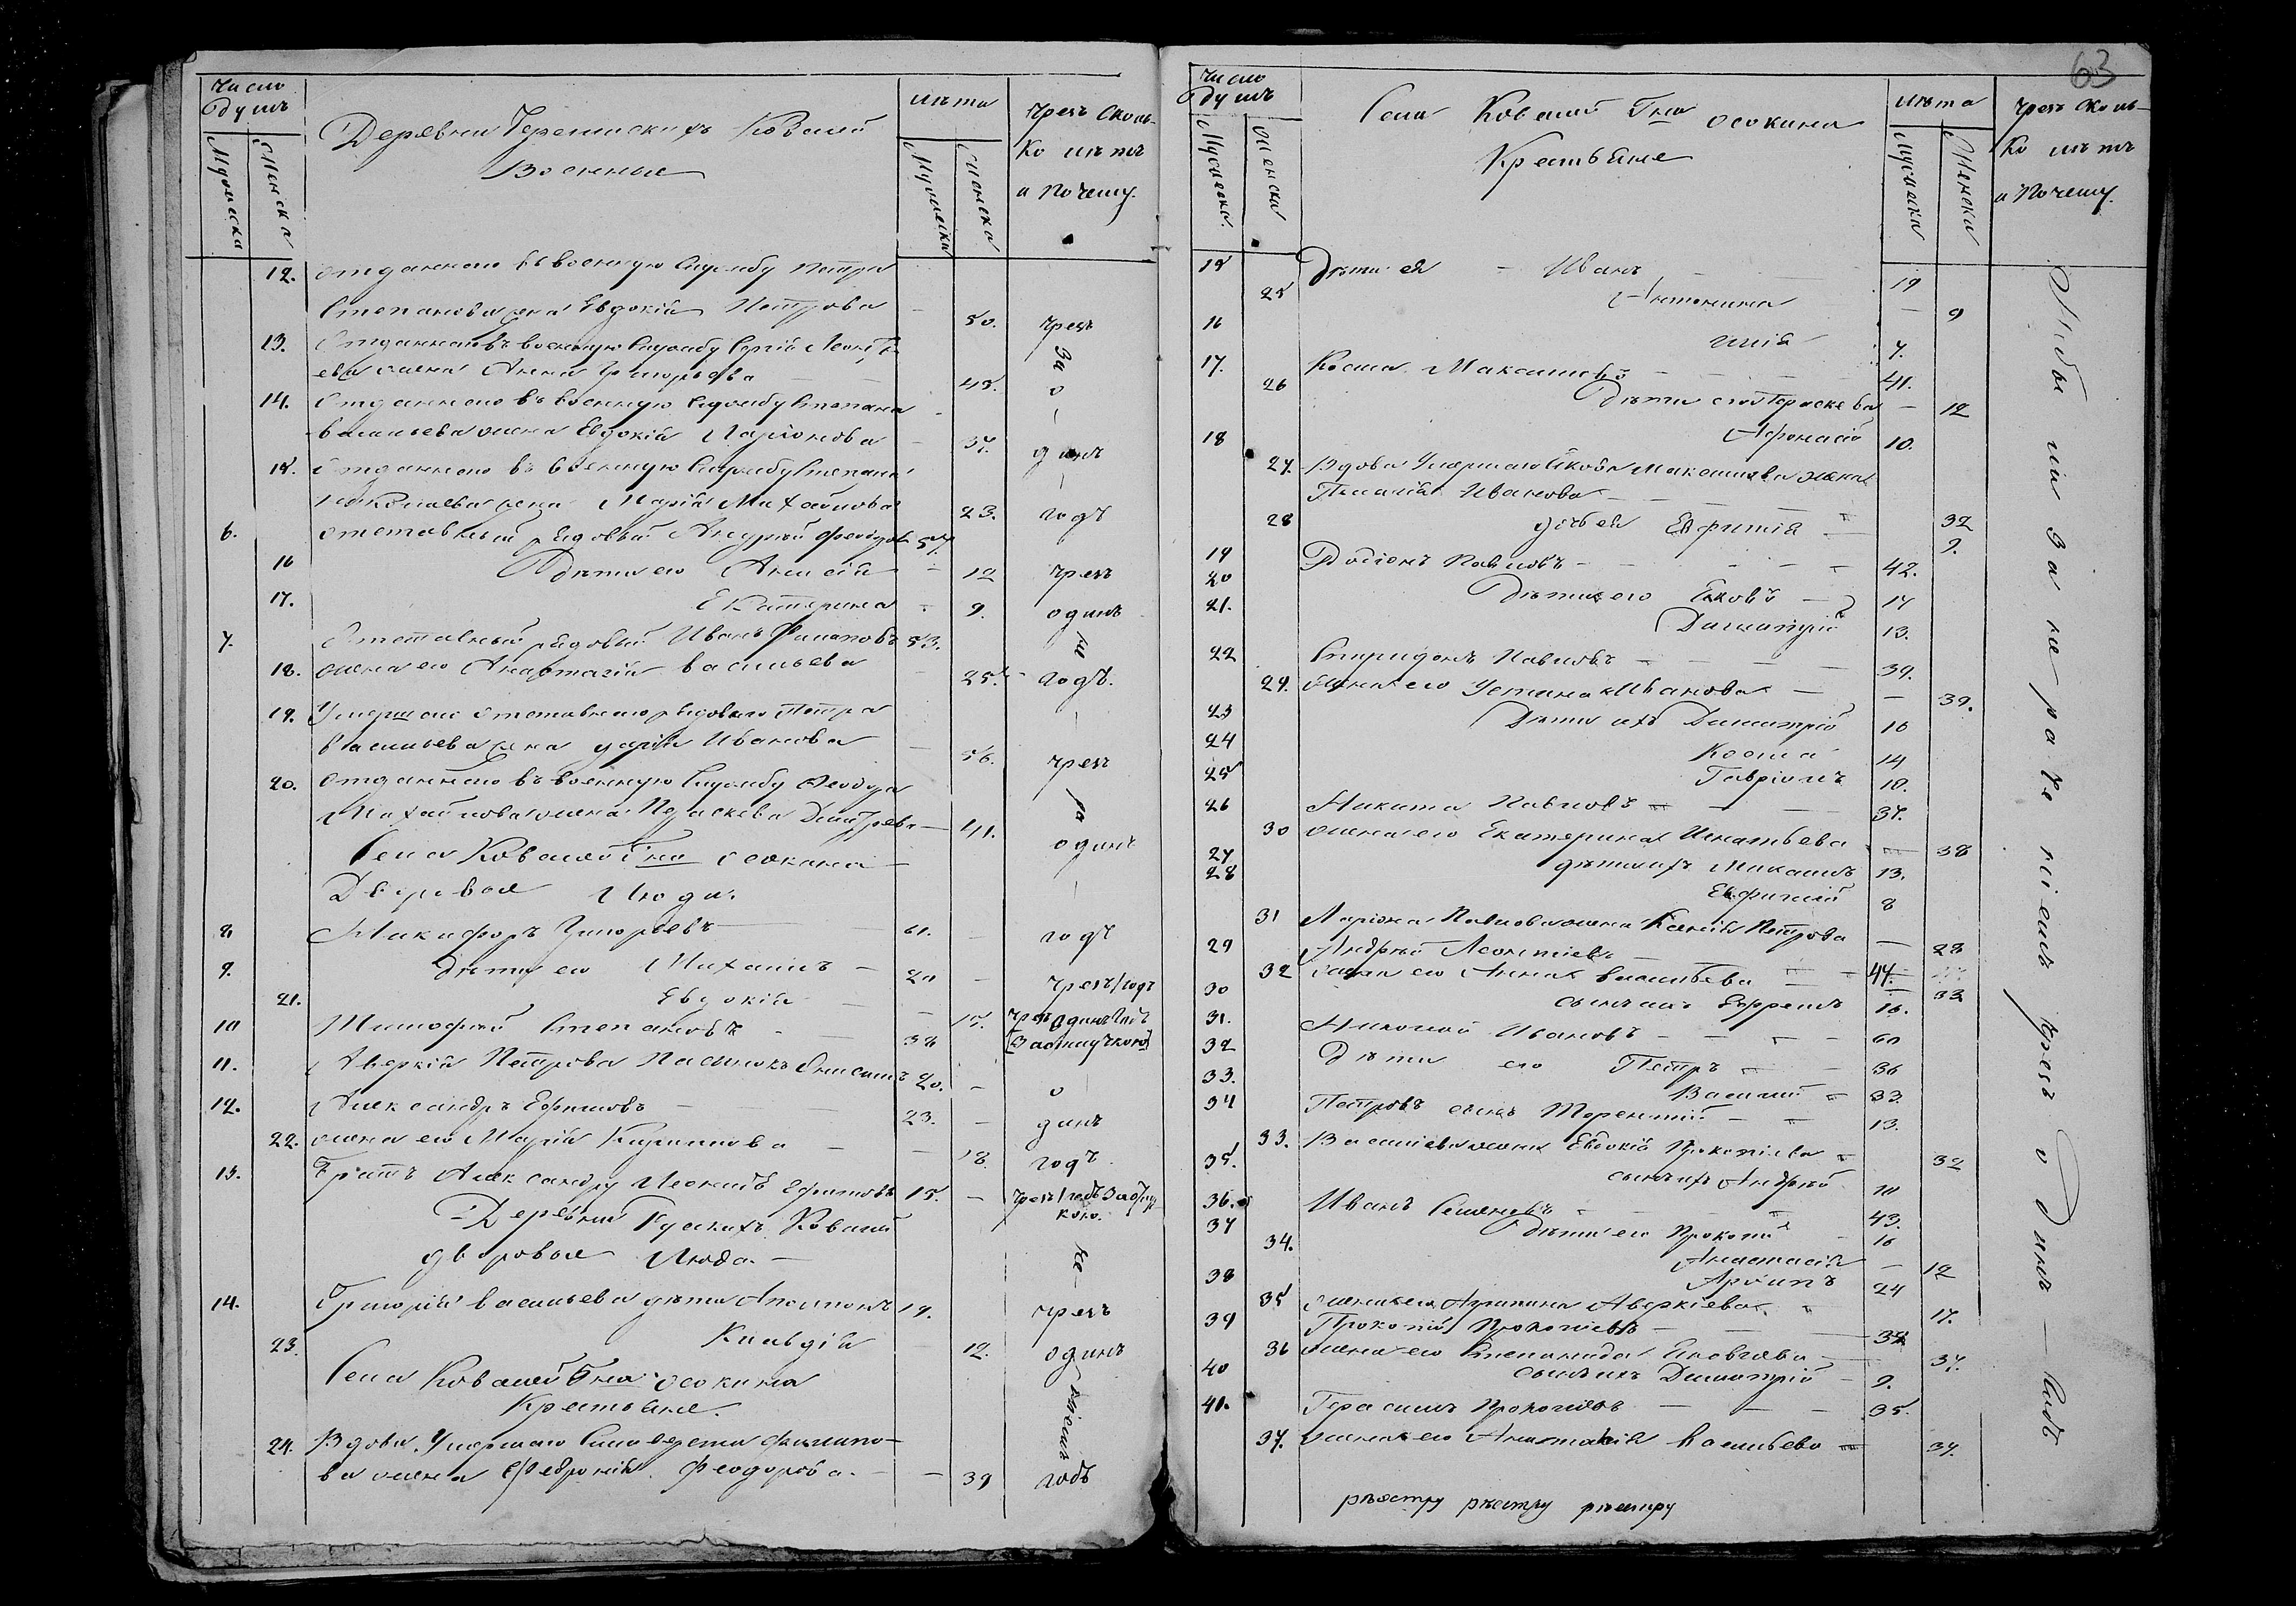 Число
душъ
Мужеска
Женска
Деревни Черемискихъ Ковалей
Военные
Мужеска
Женска
лѣта
чрезъ сколь-
ко лѣтъ
и почему.
12. отданнаго въ военную службу Петра
Степанова жена Евдокія Петрова – 50. чрезъ
13. Отданнаго въ военную службу Сергія Леонть-
ева жена Анна Григорьева 45.
14. Отданнаго въ военную службу Степана
Васильева жена Евдокія Ларіонова – 37. динъ
15. Отданнаго въ военную службу Степана
жена Марія Михайлова 23. годъ
6. отставный рядовый Андрей Феодоровъ 57.
16 Дѣти его Анисія – 12 чрезъ
17. Екатерина – 9. одинъ
7. Отставный рядовый Иванъ Филиповъ 53.
18. жена его Анастасія Васильева – 25. годъ.
19. Умершаго отставнаго рядоваго Петра
Васильева жена Дарія Иванова – 56. чрезъ
20. отданнаго въ военную службу Феодора
Михайлова жена Параскева Дмитрева – 41. одинъ
Села Ковалей Гна Осокина
Дворовые люди.
8 Никифоръ Григорьевъ 61. – годъ
9. дѣти его Михаилъ – 20 – чрезъ 1 годъ
21. Евдокія – 15. чрезъ одинъ годъ
10 Тимофей Степановъ 38 [За отлучкою]
11. Аверкій Петрова пасынокъ Анисимъ 20. – о
12. Александръ Ефимовъ – 23. – динъ
22. жена его Марія Кирилова – – 18. годъ
13. Братъ Александру Леонидъ Ефимовъ 15. – чрезъ 1 годъ За отлуч
кою.
Деревни Русскихъ Ковалей
дворовые люди. –
14. Григорія Васильева дѣти Аполлонъ 19. чрезъ
23. Клавдія – 12. одинъ
Села Ковалей Гна Осокина
Крестьяне.
24. Вдова, Умершаго Филипо-
ва жена Февронія Феодорова. – – 39 годъ
63
Число
душъ
Мужеска
Женска
Села Ковалей Гна Осокина
Крестьяне
лѣта
Мужеска
Женска
чрезъ сколь-
ко лѣтъ
и почему.
15 Дѣти ея – Иванъ 19
25 Антонина – 9
16 Илія 7.
17. Косма Максимовъ – 41.
26 Дѣти его Параскева – 12
18 Афонасій 10.
27. Вдова Умершаго Якова Максимова жена
Пелагія Иванова – 32
28 дочь ея Евфимія – 9.
19 Родіонъ Павловъ – 42.
20 Дѣти его Яковъ – 17
21. Димитрій 13.
22 Спиридонъ Павловъ – 39.
29. Жена его Устина Иванова – – 39.
23 Дѣти ихъ Димитрій 16
24 Косма 14
25 Гавріилъ 10.
26 Никита Павловъ – 37.
30 жена его Екатерина Игнатьева – 38
27 дѣти ихъ Михаилъ 13.
28 Евфимій 8
31 Ларіона Павлова жена Ксенія Петрова – 28
29 Андрей Леонтіевъ 44.
32 жена его Анна Васильева – 33
30 сынъ ихъ Ефремъ 16.
31. Николай Ивановъ – 60
32 Дѣти его Петръ – 36
33. Василій – 33
34 Петровъ сынъ Терентій – 13.
33. Васильева жена Евдокія Прокопіева – 32
35. сынъ ихъ Андрей 10
36. Иванъ Семеновъ – 43.
37 Дѣти его Прокопій 16
34. Анастасія – 12
38 Архипъ 24
35 жена его Агрипина Аверкіева – 17.
39 Прокопій Прокопіевъ –
36 жена его Степанида Яковлева – 37.
40 сынъ ихъ Димитрій – 9.
41. Герасимъ Прокопіевъ – 35.
37. жена его Анастасія Васильева – 34.
реэстру реестру реестру